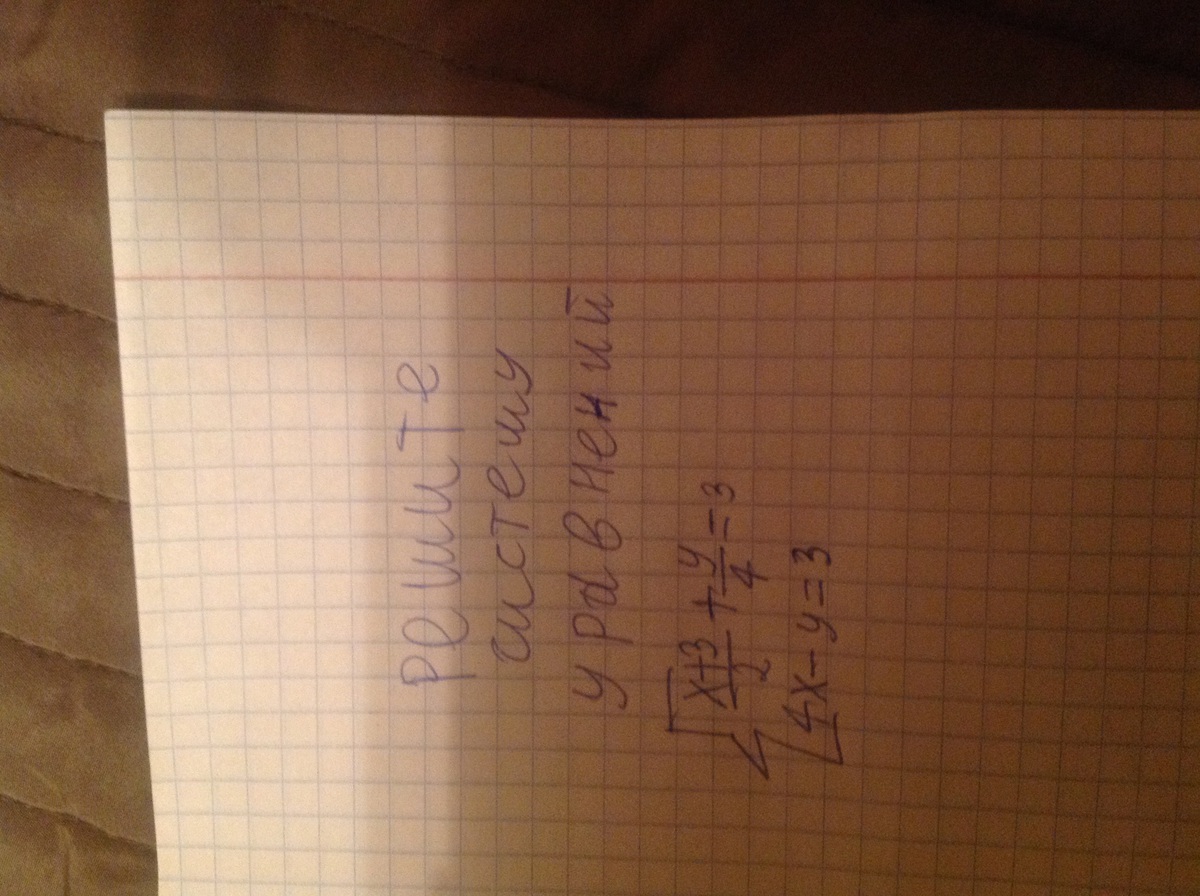 решите
систему
уравнений
{ x+3/2 + y/4 = 3
4x - y = 3